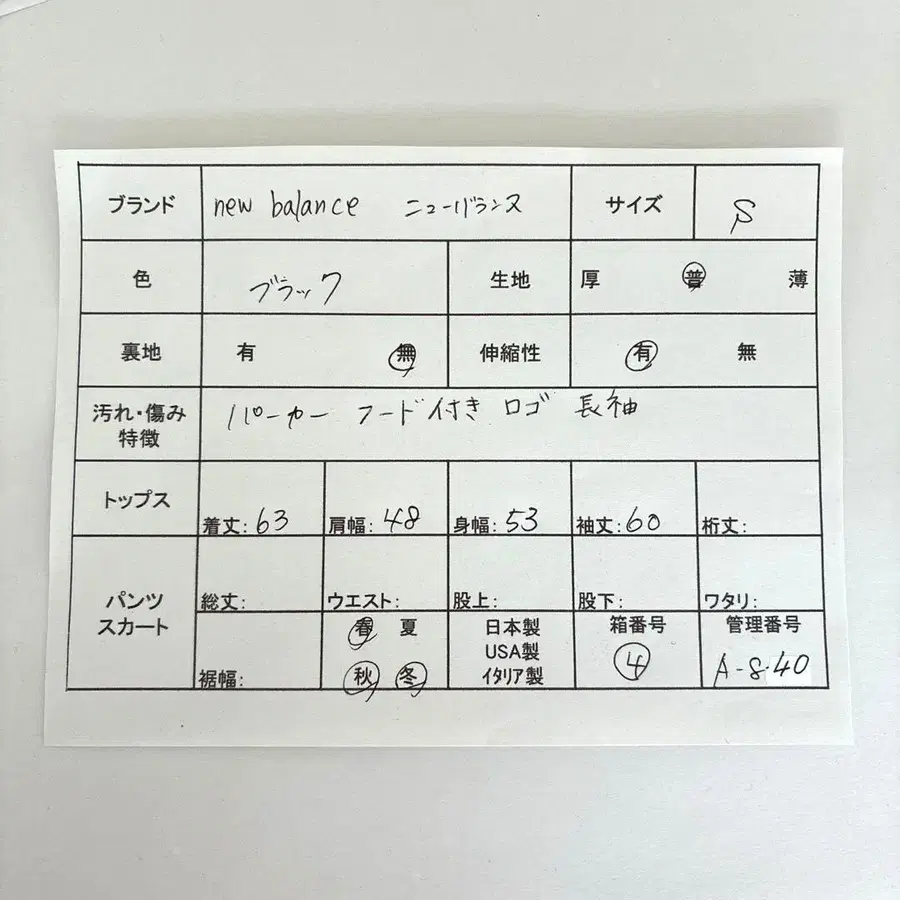 ブランド new balance ニューバランス サイズ S
色 ブラック 生地 厚 普 薄
裏地 有 無 伸縮性 有 無
汚れ・傷み
特徴
パーカー フード付き ロゴ 長袖
トップス 着丈:63 肩幅:48 身幅:53 袖丈:60 裄丈:
パンツ
スカート
総丈: ウエスト: 股上: 股下: ワタリ:
裾幅:
春 夏
秋 冬
日本製
USA製
イタリア製
箱番号
4
管理番号
A-8・40